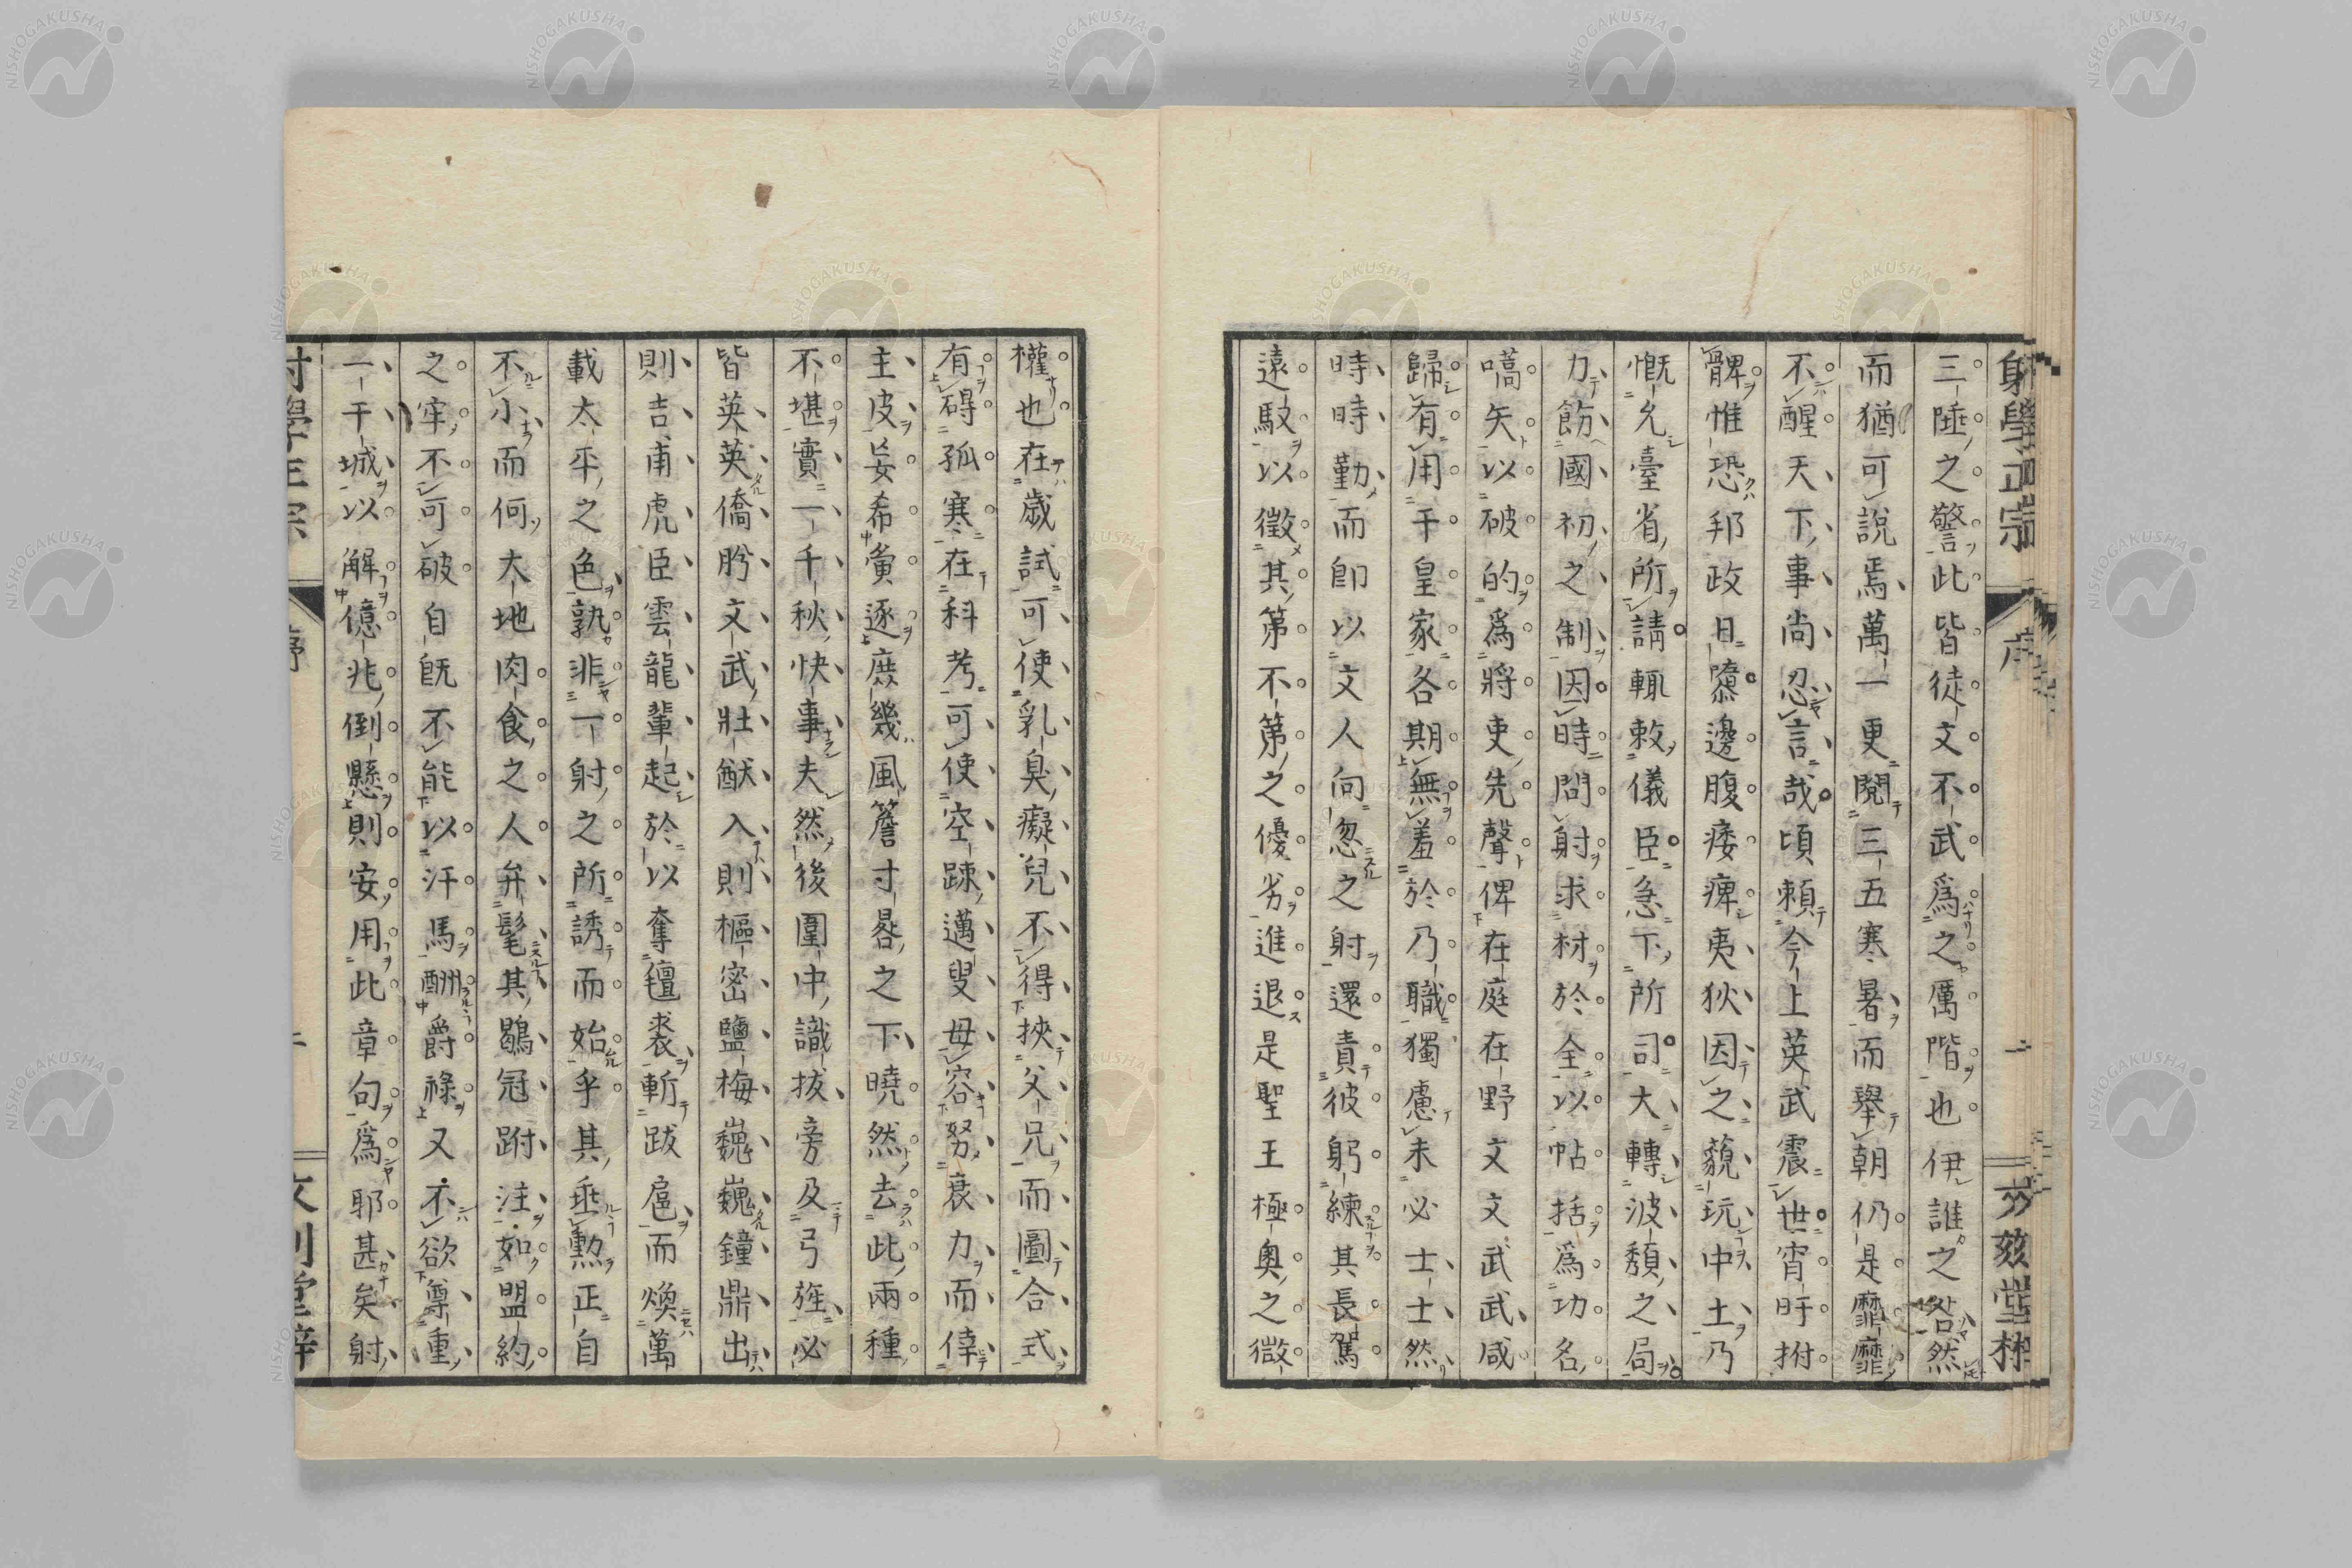 射學正宗
序
一
三陲之警此皆徒文不武爲之厲階也伊誰之咎然
而猶可說焉萬一更閱三五寒暑而舉朝仍是靡靡
不醒天下事尚忍言哉頃賴今上英武震世宵旰拊
髀惟恐邦政日隳邊腹痿痺夷狄因之藐玩中土乃
慨允臺省所請輒敕儀臣急下所司大轉波頹之局
力飭國初之制因時問射求材於全以帖括爲功名
嚆矢以破的爲將吏先聲俾在庭在野文文武武咸
歸有用干皇家各期無羞於乃職獨慮未必士士然
時時勤而卽以文人向忽之射還責彼躬練其長駕
遠馭以徵其第不第之優劣進退是聖王極奧之微
權也在歲試可使乳臭癡兒不得挾父兄而圖合式
有碍孤寒在科考可使空踈邁叟毋容努衰力而倖
主皮妄希黌逐庶幾風簷寸晷之下曉然去此兩種
不堪實一千秋快事夫然後圍中識拔旁及弓旌必
皆英英僑肸文武壯猷入則樞密鹽梅巍巍鐘鼎出
則吉甫虎臣雲龍輩起於以奪氊裘斬跋扈而煥萬
載太平之色孰非一射之所誘而始乎其垂勲正自
不小而何大地肉食之人弁髦其鶡冠跗注如盟約
之牢不可破自旣不能以汗馬酬爵祿又不欲尊重
一干城以解億兆倒懸則安用此章句爲耶甚矣射